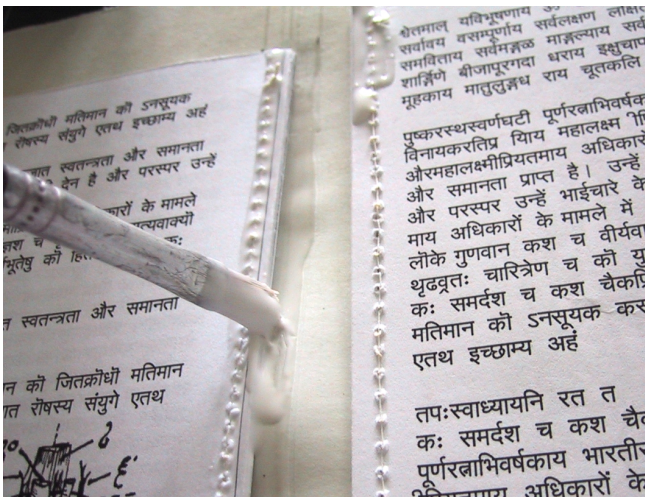 जितक्रोधॊ मतिमान कॊ ऽनसूयक
रॊषस्य संयुगे एतथ इच्छाम्य अहं
स्वतन्त्रता और समानता
देन है और परस्पर उन्हें
के मामले
च
स्वतन्त्रता और समानता
कॊ जितक्रॊधॊ मतिमान
रॊषस्य संयुगे एतथ
क्षेतमाल् यविभूषणाय
सर्वावय वसम्पूर्णाय सर्वलक्षण
समविताय सर्वमङ्गळ माङ्गल्याय सर्व
शार्ङ्गिणे बीजापूरगदा धराय इक्षुचाप
मूहकाय मातुलुङ्गध राय चूतकलि
पुष्करस्थस्वर्णघटी पूर्णरत्नाभिवर्षक
विनायकरतिप्र यिाय महालक्ष्म
औरमहालक्ष्मीप्रियतमाय अधिकारों
और समानता प्राप्त है। उन्हें
और परस्पर उन्हें भाईचारे के
माय अधिकारों के मामले में
लॊके गुणवान कश च वीर्यवा
थृढव्रतः चारित्रेण च कॊ यु
कः समर्दश च कश चैकप्रि
मतिमान कॊ ऽनसूयकः कस
एतथ इच्छाम्य अहं
तपःस्वाध्यायनि रत त
कः समर्दश च कश चै
पूर्णरत्नाभिवर्षकाय भारतीर
अधिकारों के